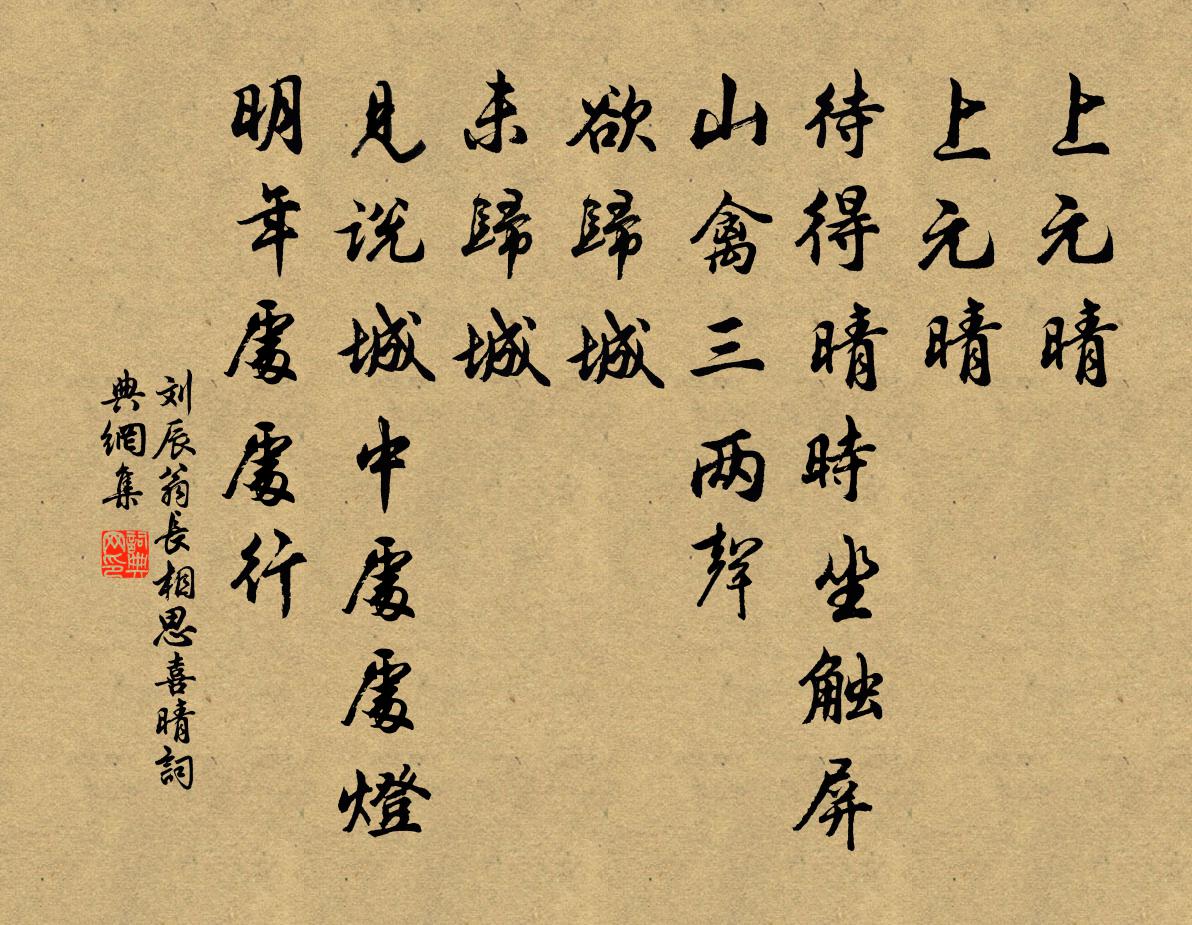 上元晴
上元晴
待得晴時坐触屏
山禽三两聲
欲歸城
未歸城
見説城中處處燈
明年處處行
刘辰翁長相思喜晴詞
典網集
詞典
网印